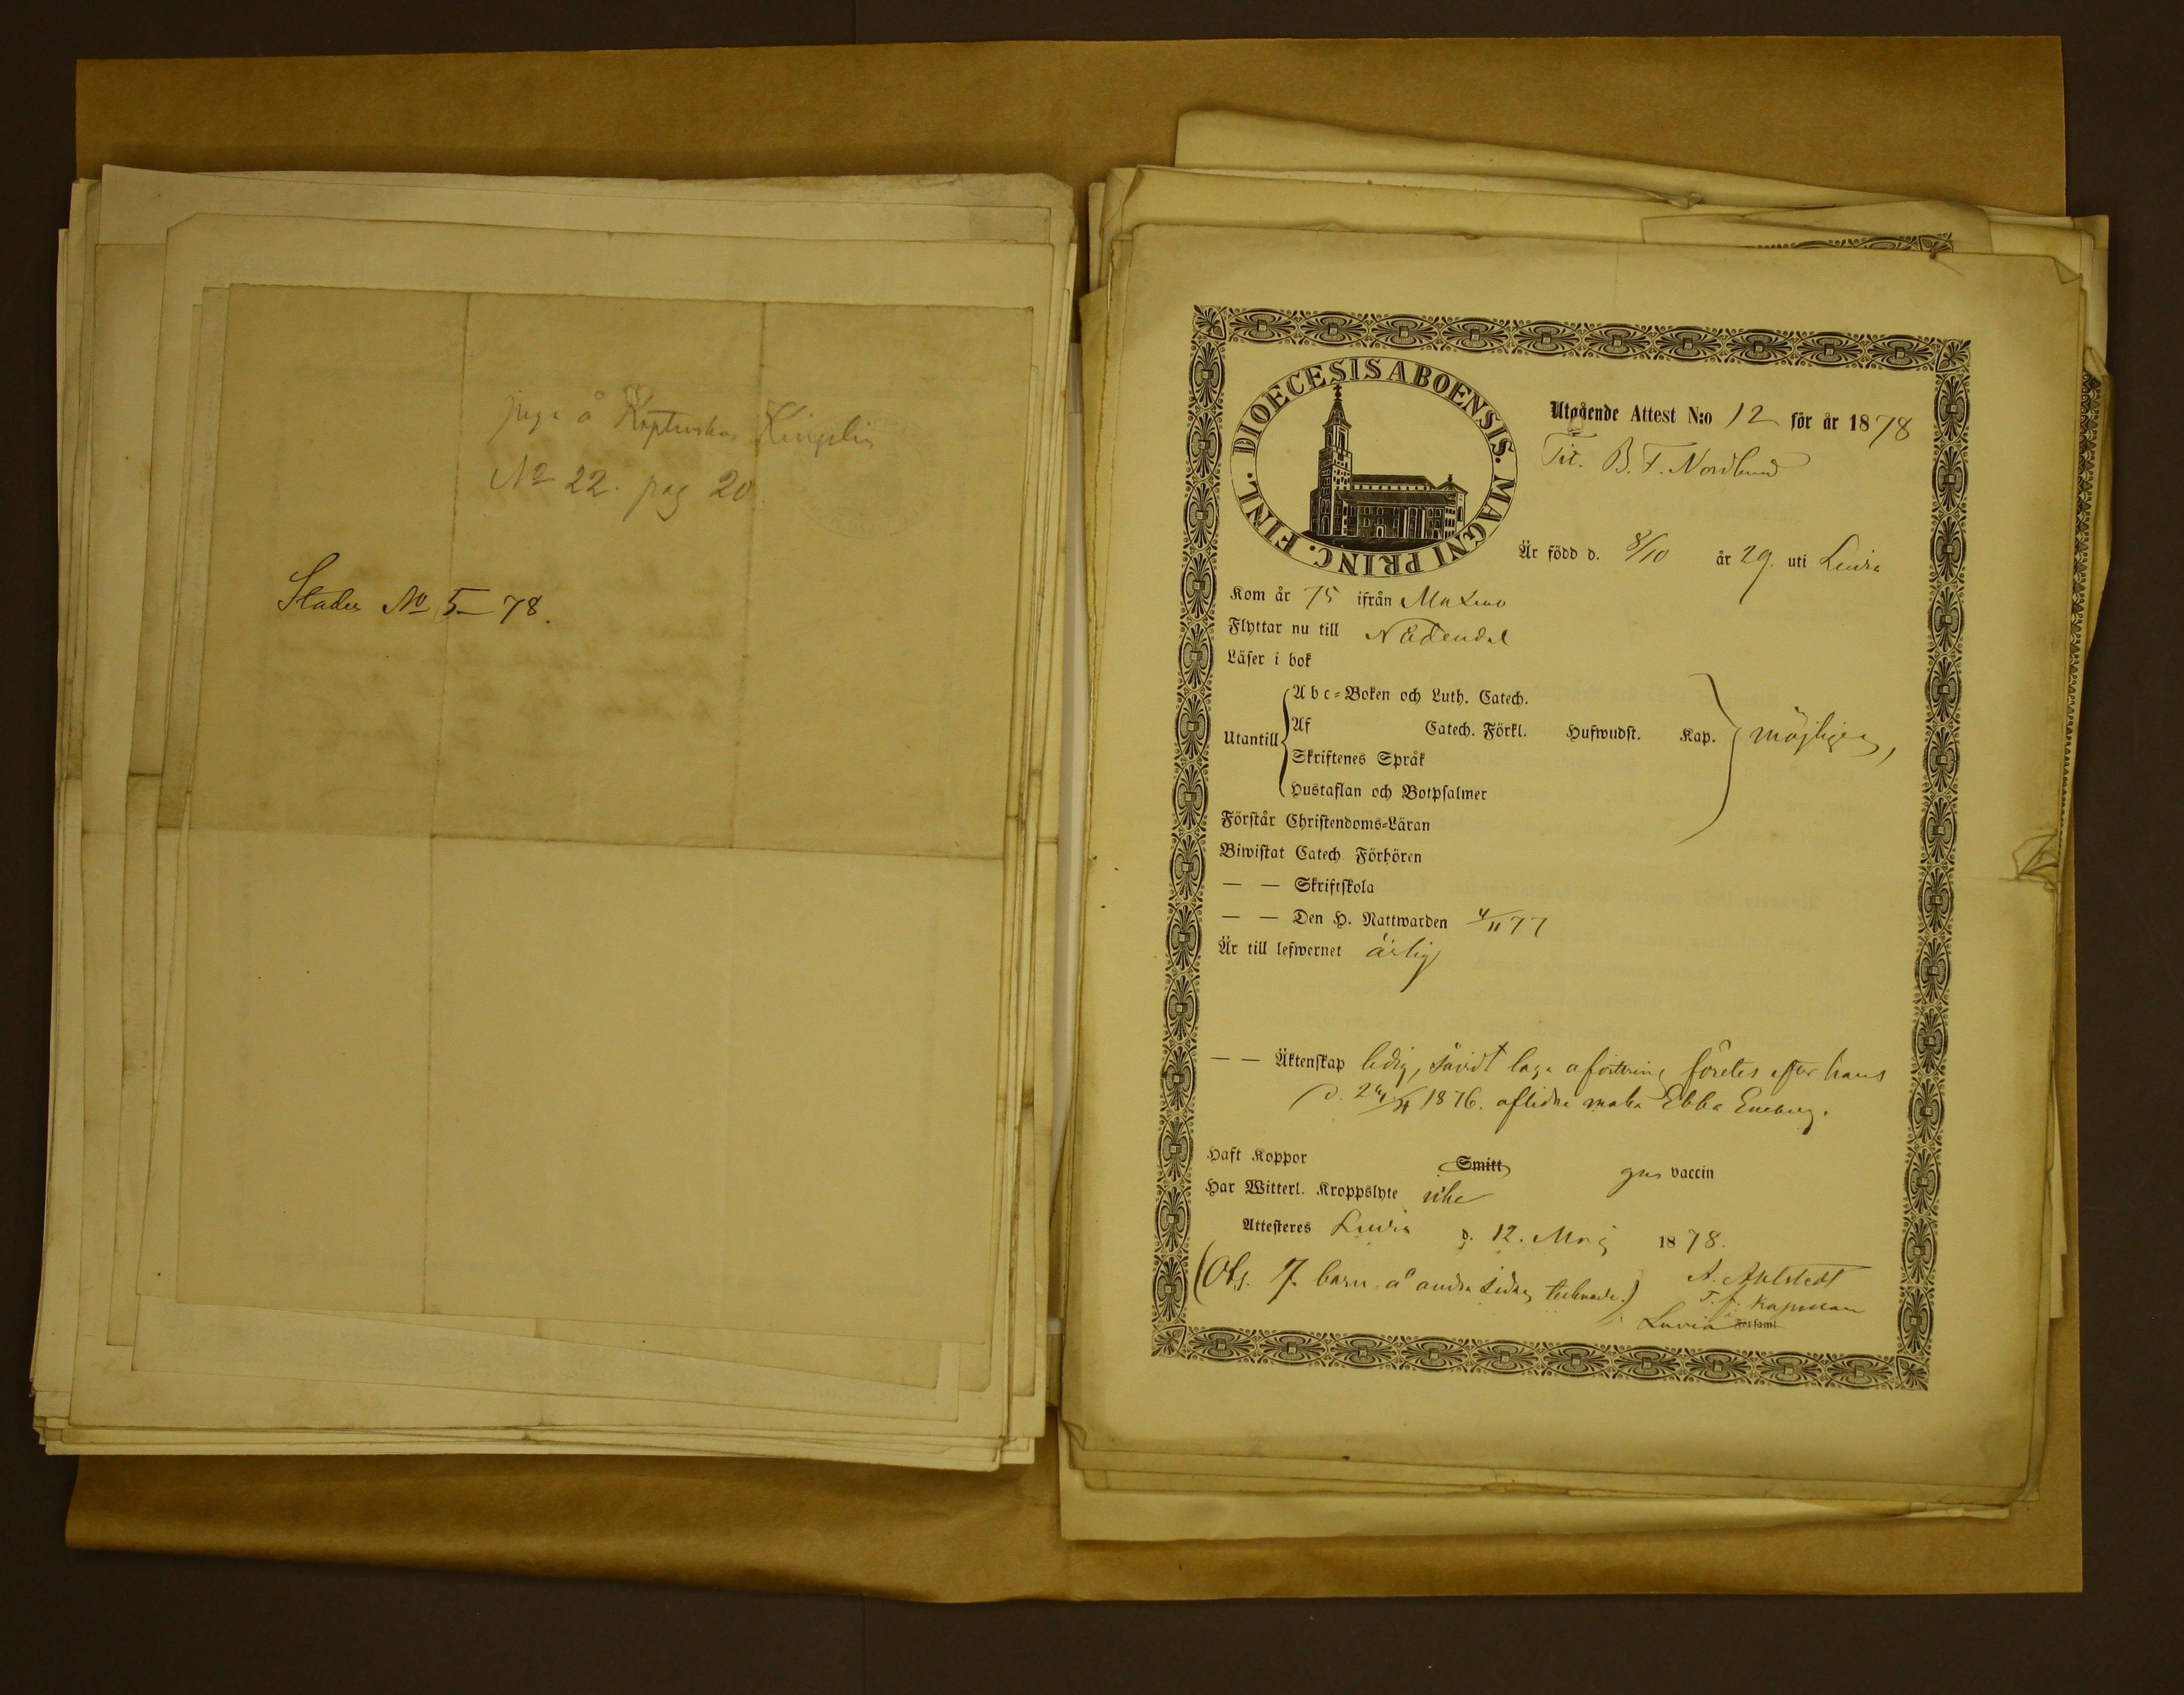 piga å Kaptenskan Kingelin
No 22. pag 20.
Staden No 5–78.
DIOECESIS ABOENSIS. MAGNI PRINC. FINL.
Utgående Attest N:o 12 för år 1878
Tit. B. F. Nordlund
Är född d. 8/10 år 29. uti Luvia
Kom år 75 ifrån
Flyttar nu till Nådendal
Läser i bok
Abc-Boken och Luth. Catech.
Utantill Af Catech. Förkl. Hufwudst. Kap. möjligen,
Skriftenes Språk
Hustaflan och Botpsalmer
Förstår Christendoms-Läran
Biwistat Catech. Förhören
— — Skriftskola
— — Den H. Nattwarden 4/11 77
Är till lefwernet ärlig
— — Äktenskap ledig, såvidt laga afvittring företes efter hans
d. 1876. aflidne maka Ebba Eneberg.
Haft Koppor Smitt gns vaccin
Har Witterl. Kroppslyte icke
Attesteres Luvia d. 12. Maj 1878.
(Obs. 7 barn å andra sidan tecknade.) A. Ahlstedt
T. f. Kapellan
Luvia Församl